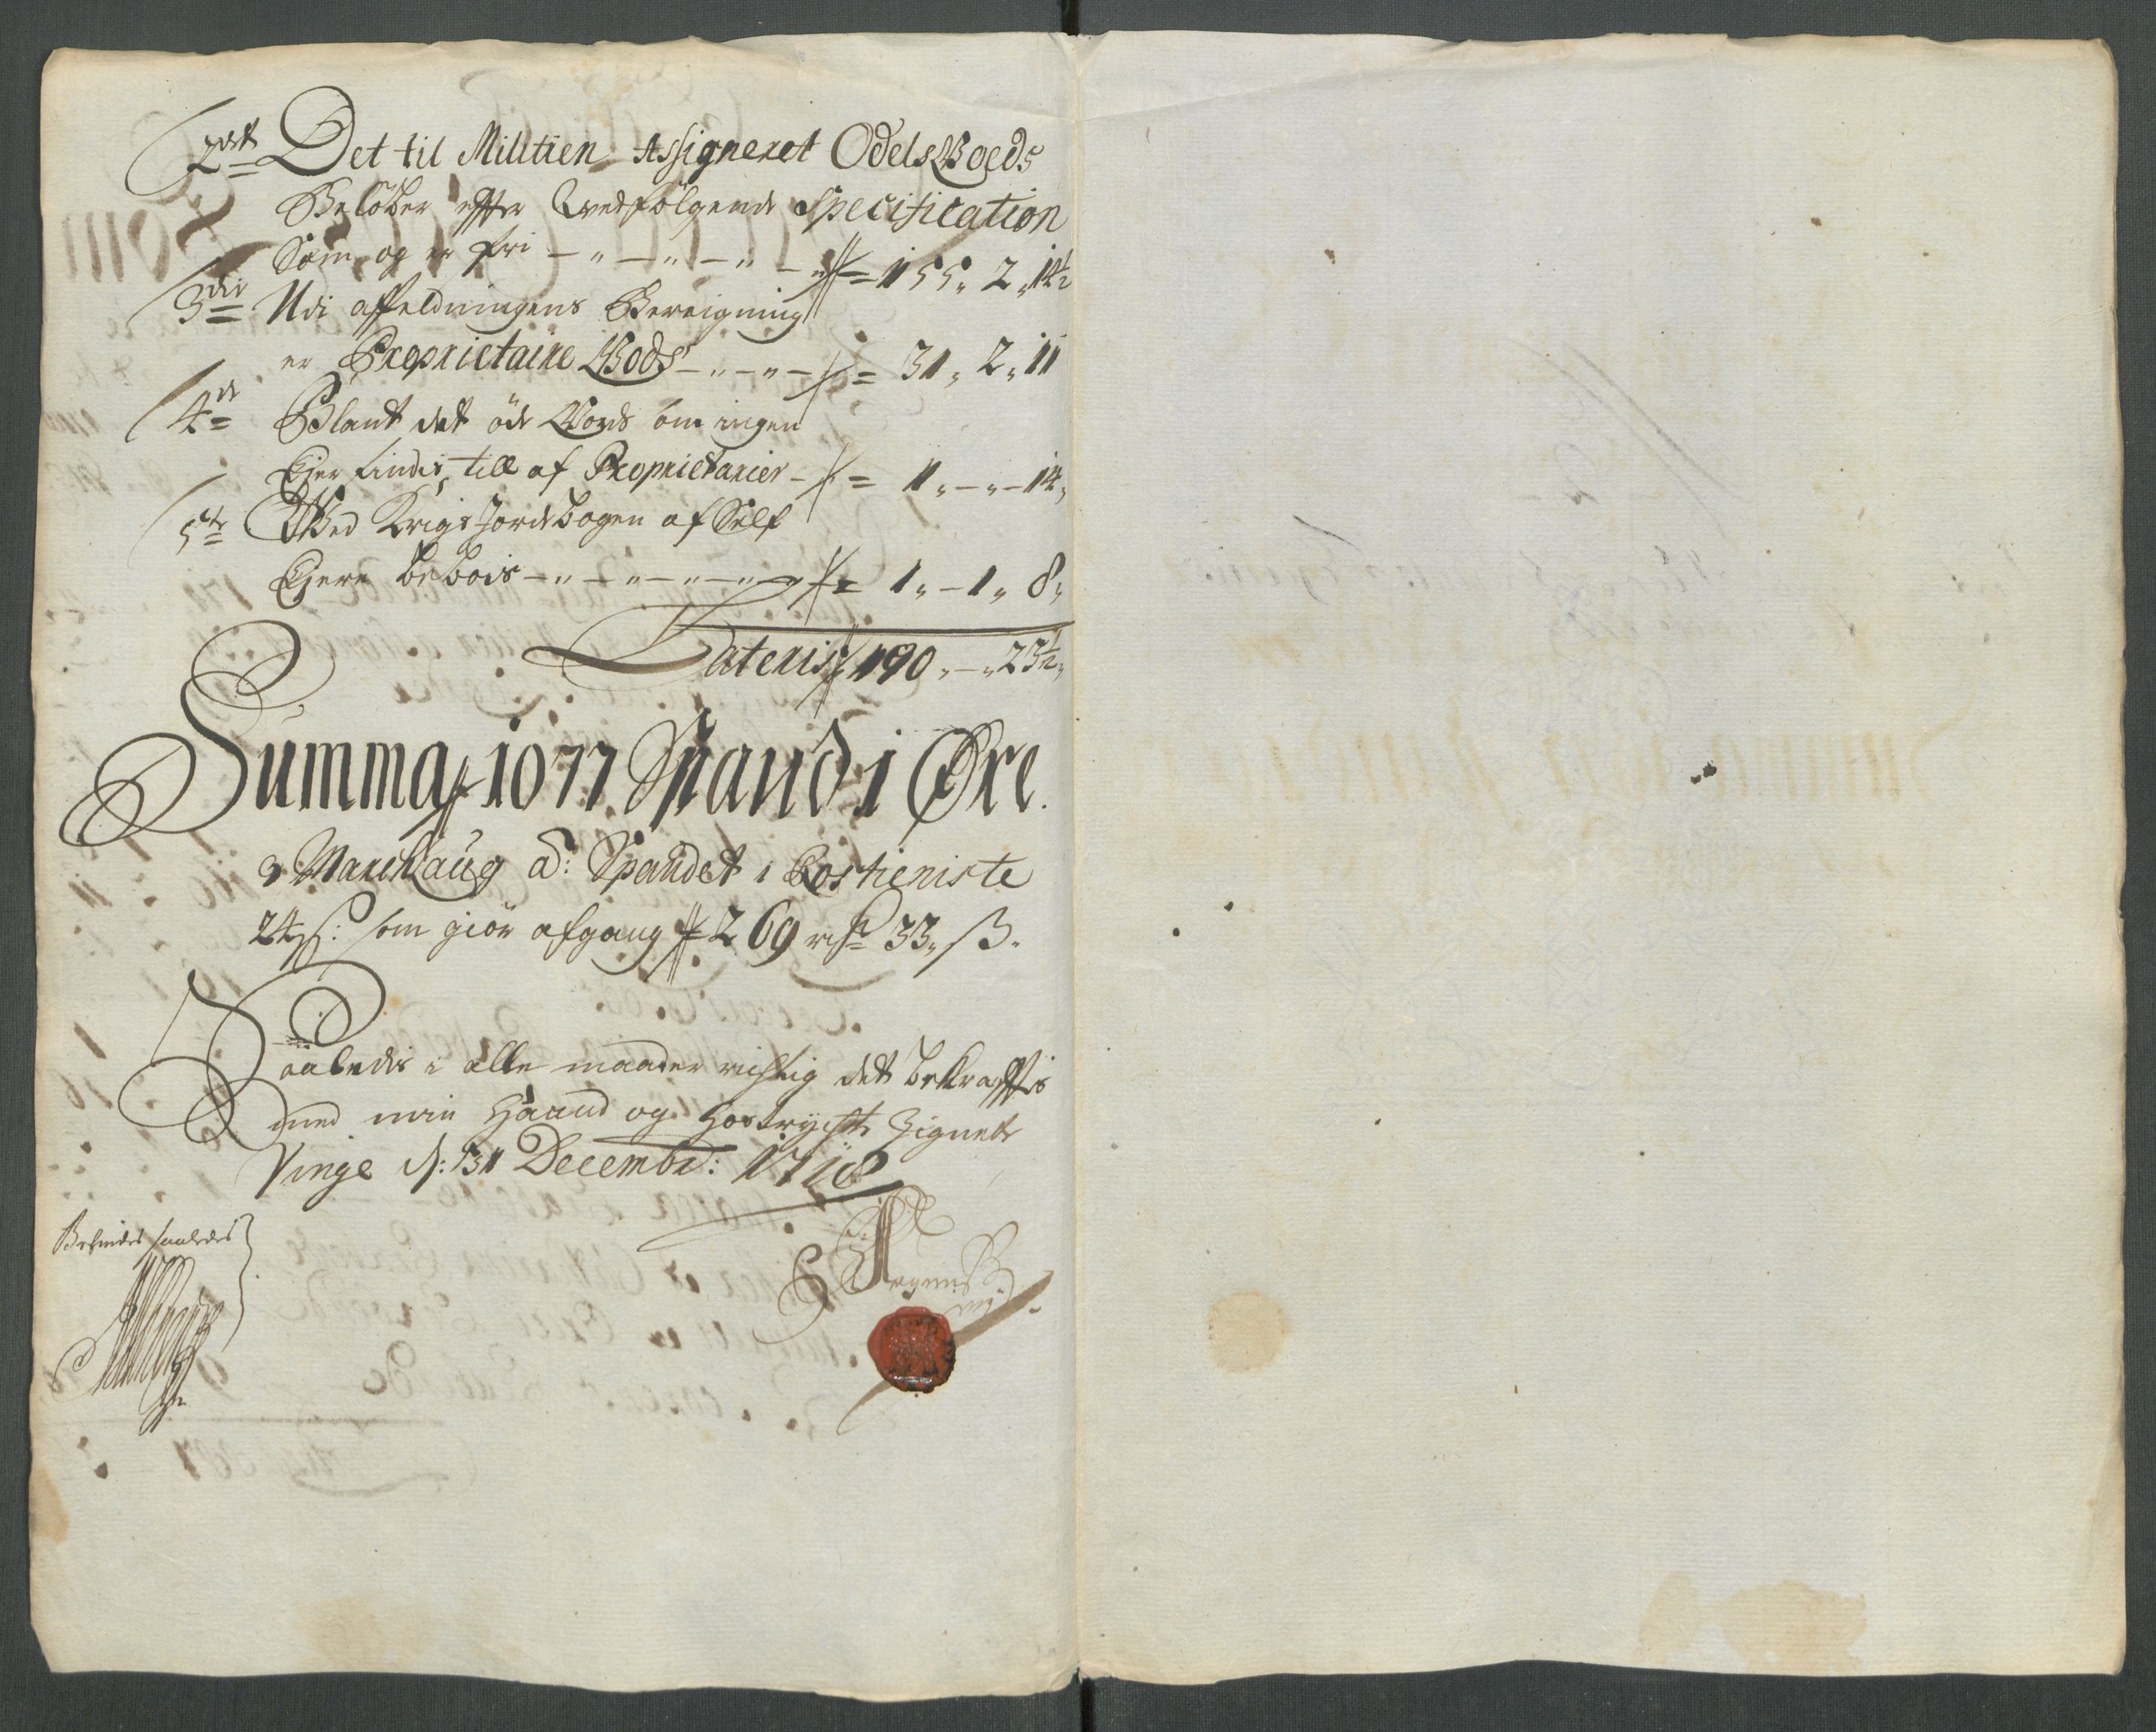 2det Det til Militien Assigneret Odels Goeds
Beløber effter Wedfølgende Specification
Som og er fri - „ - „ - „ - „ = 155 „ 2 „ 14½
3die Udi affeldningens Bereigning
er Proprietaire Gods - „ - „ - = 31 „ 2 „ 11
4de Blant det øde Gods som ingen
Ejer findis till af Proprietarier - = 1 „ - „ - 14 „
5te Wed Krigs Jordebogen af Self
Ejere beboes - „ - „ - „ - „ = 1 „ - 1 „ 8 „
Lateris 190 „ - „ 23½ „
Summa 1077 Spand 1 Øre
3 Marchlaug a: Spandet i Rostieniste
24 ß: som giør afgang 269 rdr 33 „ ß.
Saaledis i alle maader rigtig det bekrafftis
med min Haand og hostrychte Zignete
Vinge d: 31 Decembr: 1718
Befindes saaledes